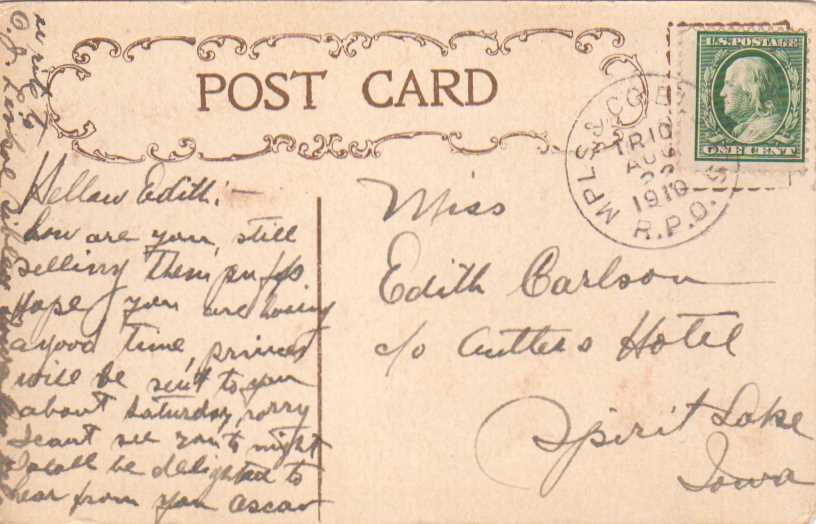 POST CARD
U.S. POSTAGE
ONE CENT
MPLS & CO.
TR 10
AUG
1910
R.P.O.
write to
O.J.
Hellow Edith:—
how are you, still
selling them puffs
Hope you are having
a good time,
will be sent to you
about Saturday, sorry
I cant see you to night
I shall be delighted to
hear from you Oscar
Miss
Edith Carlson
c/o Antlers Hotel
Spirit Lake
Iowa